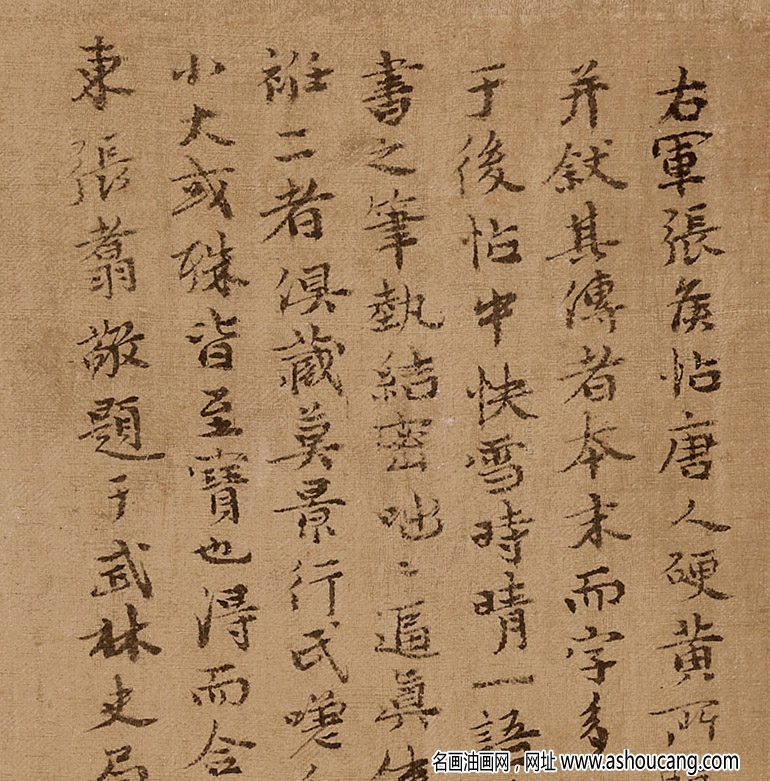 右軍張侯帖唐人硬黃所
并敘其傳者本末而字多
于後帖中快雪時晴一語
書之筆執結密咄〻逼真
二者俱藏莫景行氏嘆
小大或殊皆至寶也得而合
東張翥敬題于武林史局
名画油画网，网址 www.ashoucang.com